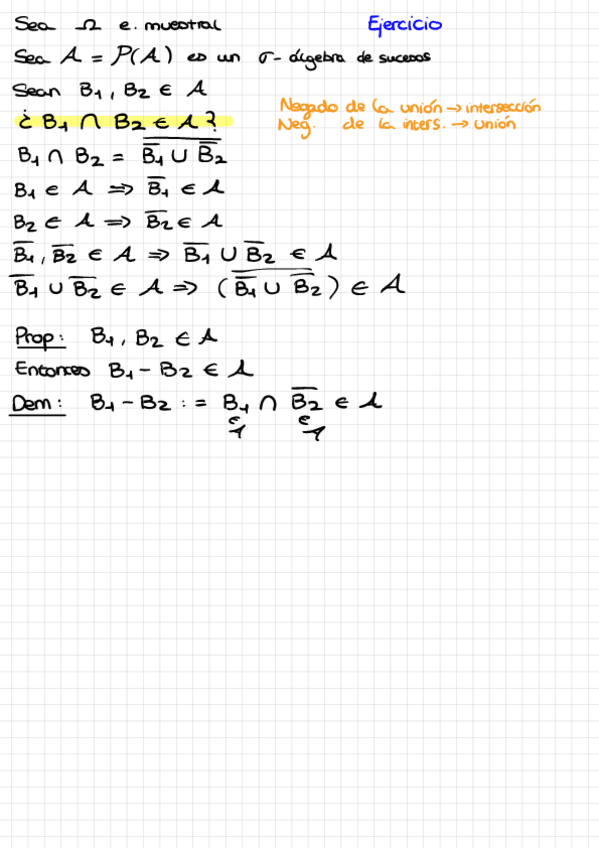 Sea Ω e. muestral
Ejercicio
Sea A = P(A) es un σ-álgebra de sucesos
Sean B₁, B₂ ∈ A
¿ B₁ ∩ B₂ ∈ A ?
Negado de la unión → intersección
Neg. de la inters. → unión
B₁ ∩ B₂ = \overline{\overline{B₁} ∪ \overline{B₂}}
B₁ ∈ A ⇒ \overline{B₁} ∈ A
B₂ ∈ A ⇒ \overline{B₂} ∈ A
\overline{B₁}, \overline{B₂} ∈ A ⇒ \overline{B₁} ∪ \overline{B₂} ∈ A
\overline{B₁} ∪ \overline{B₂} ∈ A ⇒ (\overline{\overline{B₁} ∪ \overline{B₂}}) ∈ A
Prop: B₁, B₂ ∈ A
Entonces B₁ - B₂ ∈ A
Dem: B₁ - B₂ := B₁ ∩ \overline{B₂} ∈ A
∈ ∈
A A